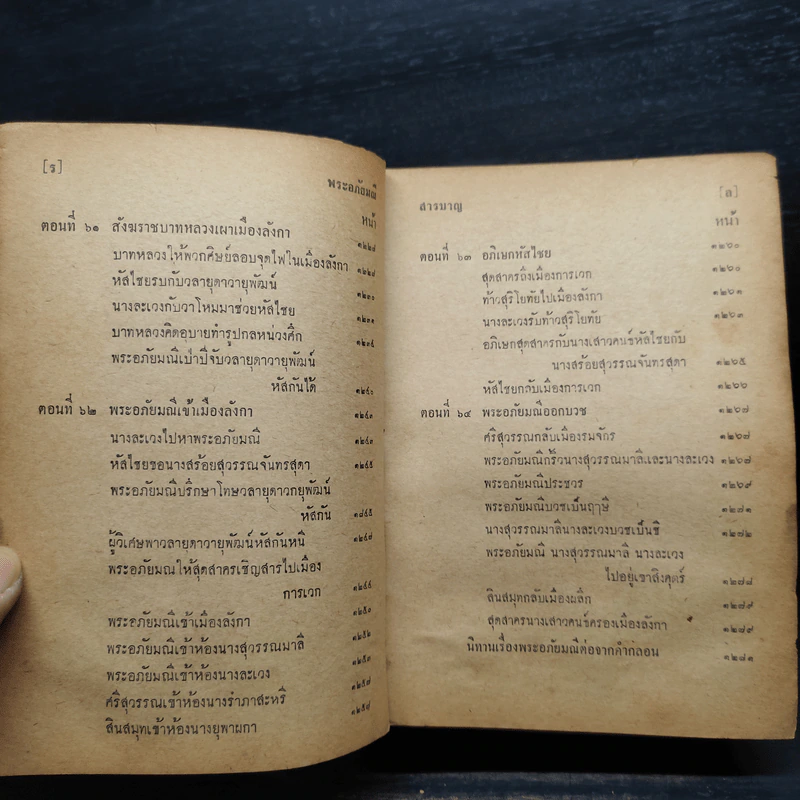 [ร]
พระอภัยมณี
หน้า
ตอนที่ ๖๑ สังฆราชบาทหลวงเผาเมืองลังกา ๑๒๒๗
บาทหลวงให้พวกศิษย์ลอบจุดไฟในเมืองลังกา ๑๒๒๗
หัสไชยรบกับวลายุดาวายุพัฒน์ ๑๒๓๐
นางละเวงกับวาโหมมาช่วยหัสไชย ๑๒๓๑
บาทหลวงคิดอุบายทำรูปกลหน่วงศึก ๑๒๓๕
พระอภัยมณีเป่าปี่จับวลายุดาวายุพัฒน์
หัสกันได้ ๑๒๔๐
ตอนที่ ๖๒ พระอภัยมณีเข้าเมืองลังกา ๑๒๔๓
นางละเวงไปหาพระอภัยมณี ๑๒๔๓
หัสไชยขอนางสร้อยสุวรรณจันทรสุดา ๑๒๔๕
พระอภัยมณีปรึกษาโทษวลายุดาวกยุพัฒน์
หัสกัน ๑๘๔๕
ผู้วิเศษพาวลายุดาวายุพัฒน์หัสกันหนี ๑๒๔๗
พระอภัยมณให้สุดสาครเชิญสารไปเมือง
การเวก ๑๒๔๙
พระอภัยมณีเข้าเมืองลังกา ๑๒๕๓
พระอภัยมณีเข้าห้องนางสุวรรณมาลี ๑๒๕๒
พระอภัยมณีเข้าห้องนางละเวง ๑๒๕๓
ศรีสุวรรณเข้าห้องนางรำภาสะหรี ๑๒๕๗
สินสมุทเข้าห้องนางยุพาผกา ๑๒๕๗
สารบาญ
[ล]
หน้า
ตอนที่ ๖๓ อภิเษกหัสไชย ๑๒๖๐
สุดสาครถึงเมืองการเวก ๑๒๖๐
ท้าวสุริโยทัยไปเมืองลังกา ๑๒๖๑
นางละเวงรับท้าวสุริโยทัย ๑๒๖๓
อภิเษกสุดสาครกับนางเสาวคนธ์หัสไชยกับ
นางสร้อยสุวรรณจันทรสุดา ๑๒๖๕
หัสไชยกลับเมืองการเวก ๑๒๖๖
ตอนที่ ๖๔ พระอภัยมณีออกบวช ๑๒๖๗
ศรีสุวรรณกลับเมืองรมจักร ๑๒๖๗
พระอภัยมณีกริ้วนางสุวรรณมาลีและนางละเวง ๑๒๖๗
พระอภัยมณีประชวร ๑๒๖๙
พระอภัยมณีบวชเป็นฤๅษี ๑๒๗๑
นางสุวรรณมาลีนางละเวงบวชเป็นชี ๑๒๗๒
พระอภัยมณี นางสุวรรณมาลี นางละเวง
ไปอยู่เขาสิงคุตร์ ๑๒๗๗
สินสมุทกลับเมืองผลึก ๑๒๗๙
สุดสาครนางเสาวคนธ์ครองเมืองลังกา ๑๒๗๙
นิทานเรื่องพระอภัยมณีต่อจากคำกลอน ๑๒๘๑